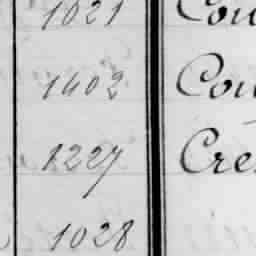 1021 Cou
1402 Cou
1227 Cre
1028